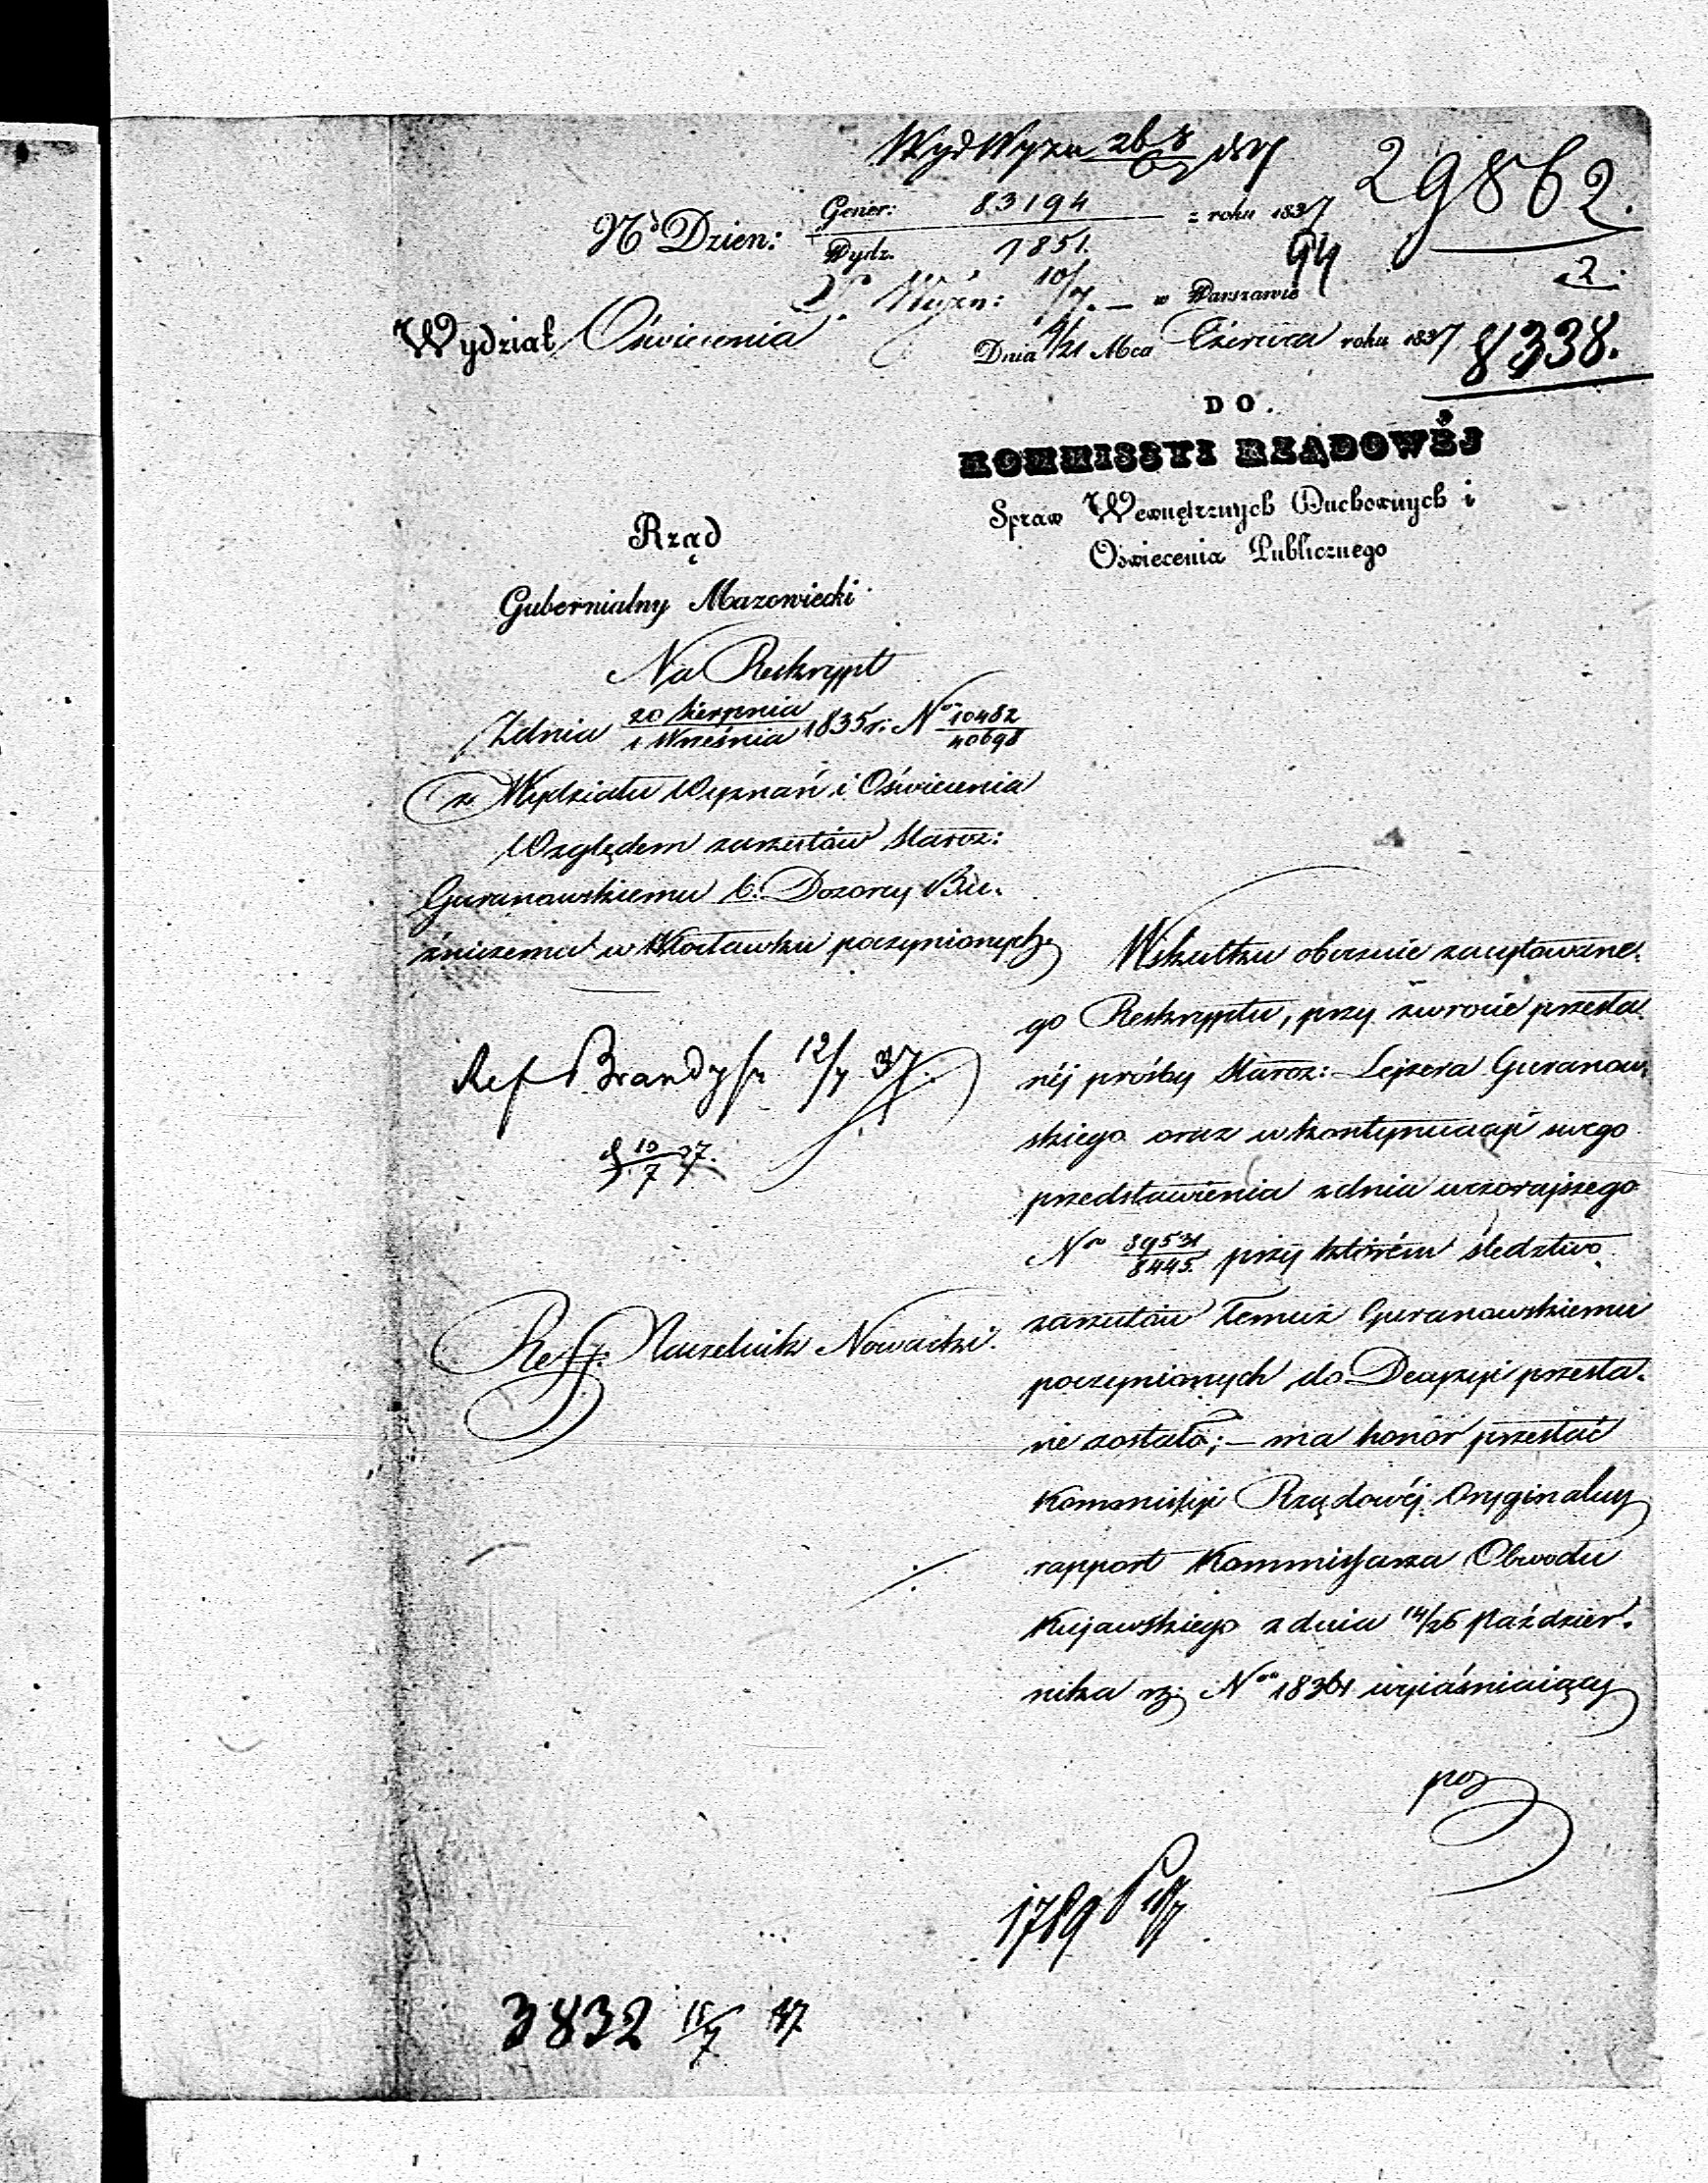 Wyd Wyzn
29862.
Nd Dzien: Gener: 83194 z roku 1837
Wydz. 7851.
94
2.
Wyzn: 10/7. — w Warszawie
Wydział Oświecenia
Dnia 9/21 Mca Czerwca roku 1837
8338.
DO.
KOMMISSYI RZĄDOWÉJ
Spraw Wewnętrznych Duchownych i
Oświecenia Publicznego
Rząd
Gubernialny Mazowiecki
Na Reskrypt
Zdnia 20 Sierpnia / 1 Września 1835 r: No 10482/40698
z Wydziału Wyznań i Oświecenia
Względem zarzutów Staroz:
Guranowskiemu b: Dozorcy Bu-
źniczemu w Włocławku poczynionych,
Ref Brandys 12/7 37.
13/7 37.
Ref. Naczelnik Nowacki.
Wskutku obocznie zacytowane-
go Reskryptu, przy zwrocie przesła-
néj prośby Staroz: Lejzera Guranow-
skiego oraz w kontynuacyi swego
przedstawienia zdnia wczorajszego
No 89531/8445. przy którém śledztwo
zarzutów temuż Guranowskiemu
poczynionych do Decyzyi przesła-
ne zostało; — ma honor przesłać
Kommissyi Rządowéj Oryginalny
rapport Kommissarza Obwodu
Kujawskiego z dnia 14/26 Paździer-
nika rz: No 18361 wyiaśniaiący
poz
1789
3832 15/7 37